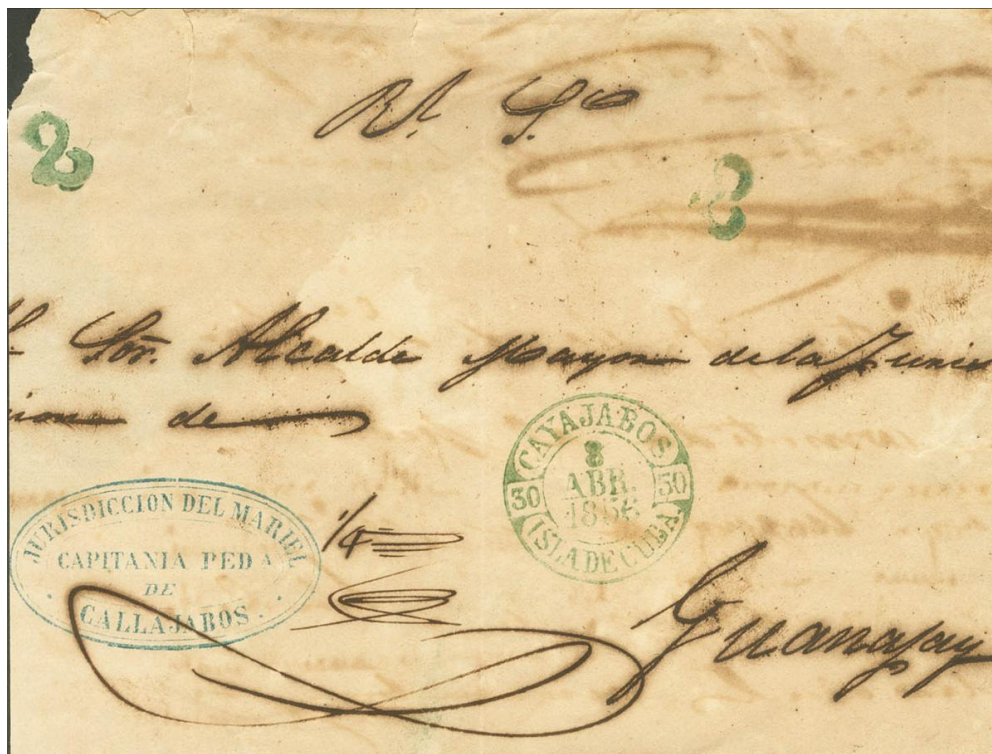 Rl. S.co
2
2
Sor. Alcalde Mayor de la Juris
cion de
CAYAJABOS
8
ABR.
1856
30 30
ISLA DE CUBA
JURISDICCION DEL MARIEL
CAPITANIA PEDA
DE
CALLAJABOS
Guanajay